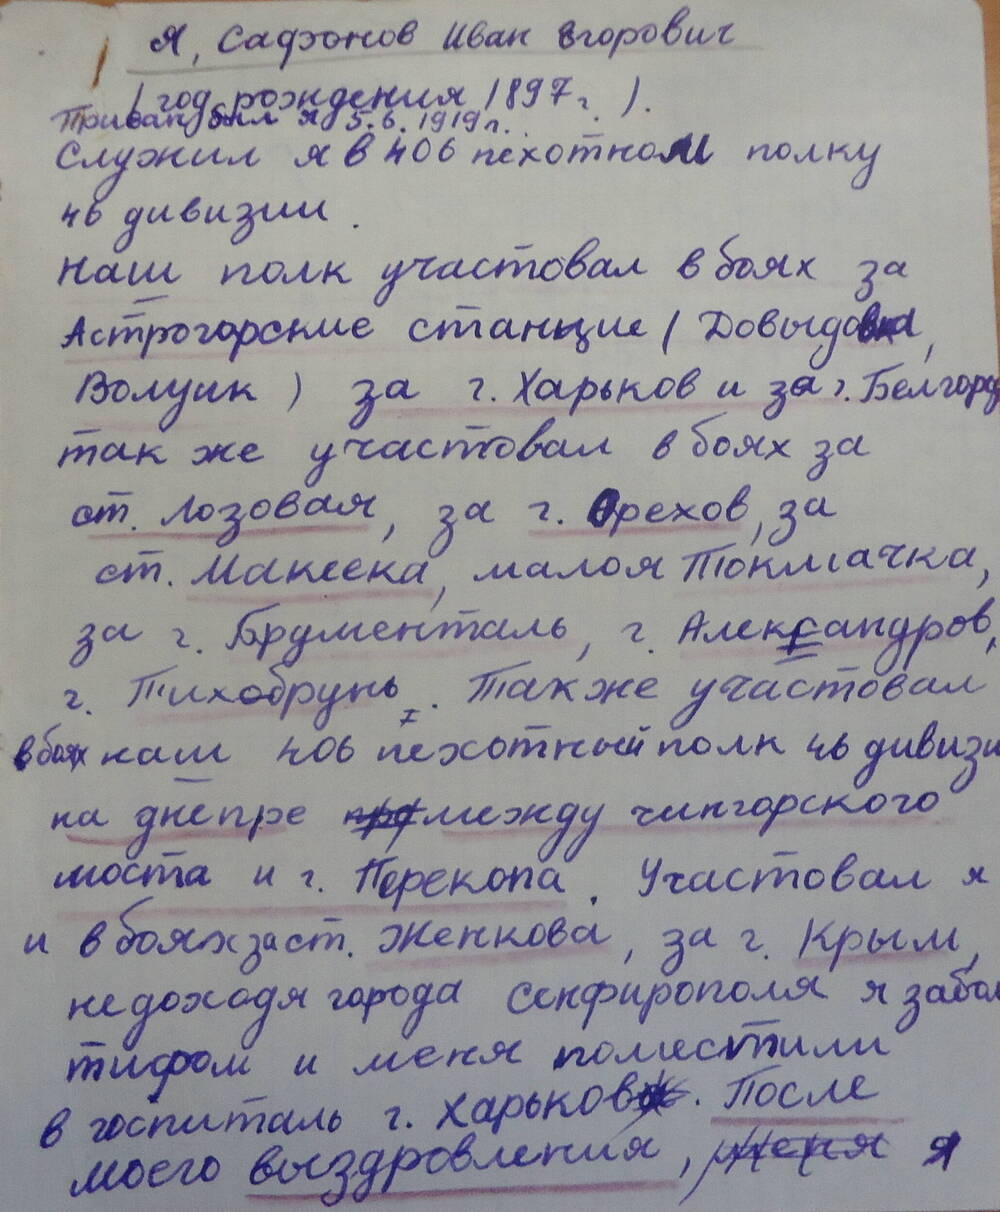 Я, Сафонов Иван Егорович
(год рождения 1897г.).
Призван был я 5.6.1919г.
Служил я в 406 пехотном полку
46 дивизии.
Наш полк участовал в боях за
Астрогорские станцие (Довыдовка,
Волуик) за г. Харьков и за г. Белгород
так же участовал в боях за
ст. Лозовая, за г. Орехов, за
ст. Макеека, малоя Токмачка,
за г. Брументаль, г. Александров,
г. Тихобрунь. Также участовал
в боях наш 406 пехотный полк 46 дивизи
на днепре между чингорского
моста и г. Перекопа. Участовал я
и в боях за ст. Женкова, за г. Крым,
не доходя города Сенфирополя я забол
тифом и меня поместили
в госпиталь г. Харьков. После
моего выздровления, меня я